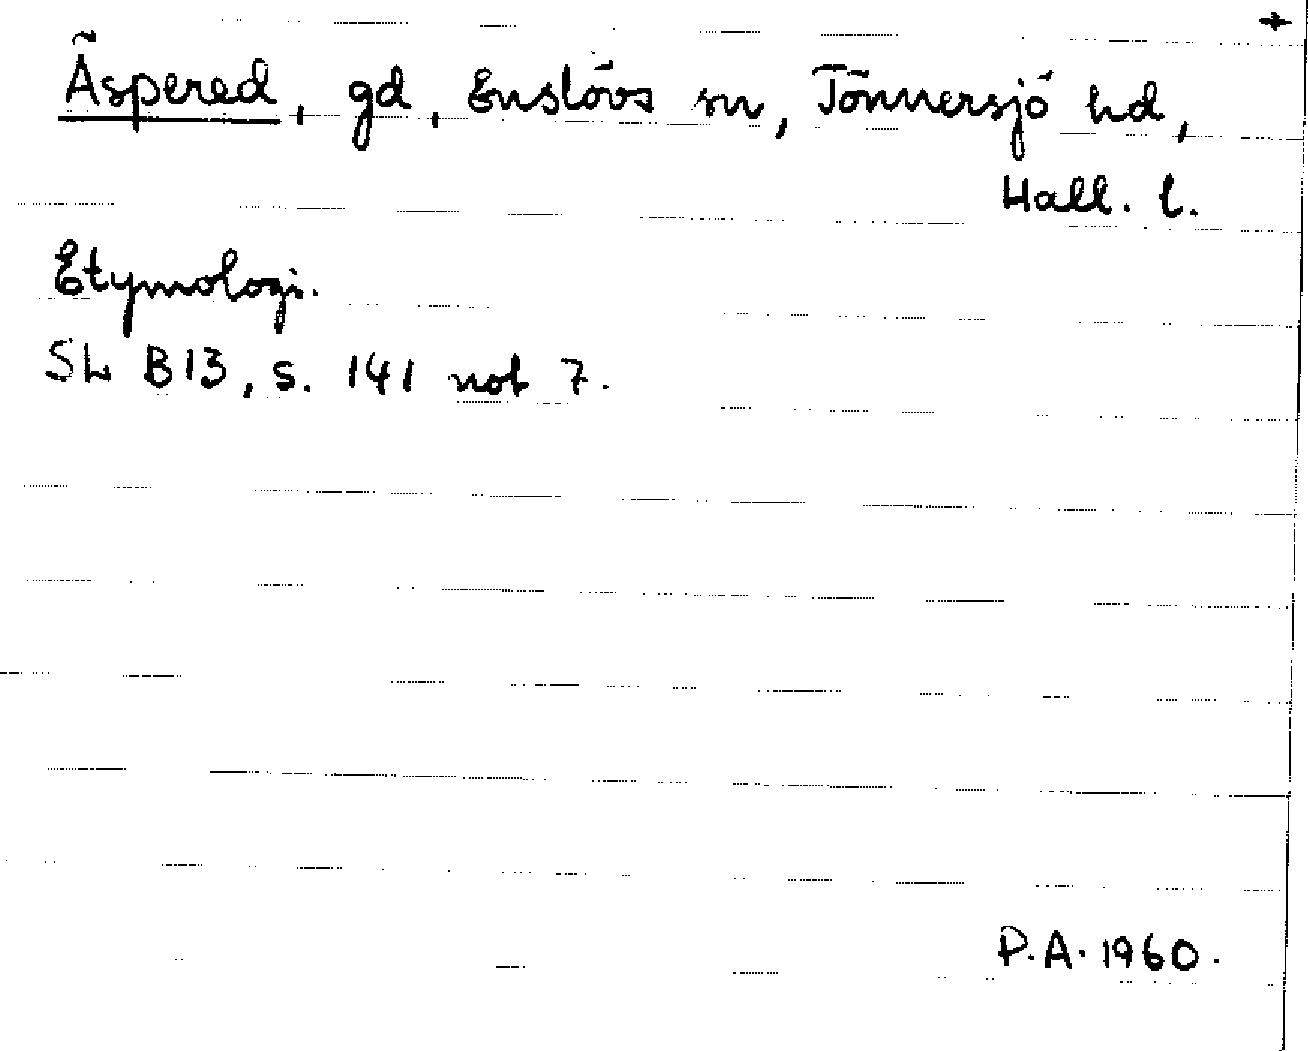 +
Äspered, gd, Enslövs sn, Tönnersjö hd,
Hall. l.
Etymologi.
SL B13, s. 141 not 7.
P.A. 1960.